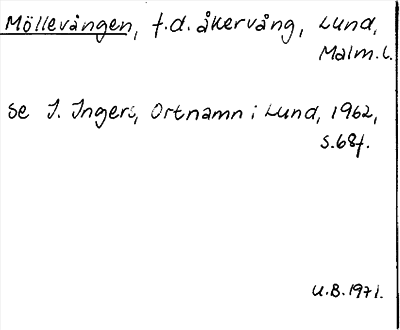 Möllevången, f.d. åkervång, Lund,
Malm.l.
Se I. Ingers, Ortnamn i Lund, 1962,
s.68f.
U.B.1971.